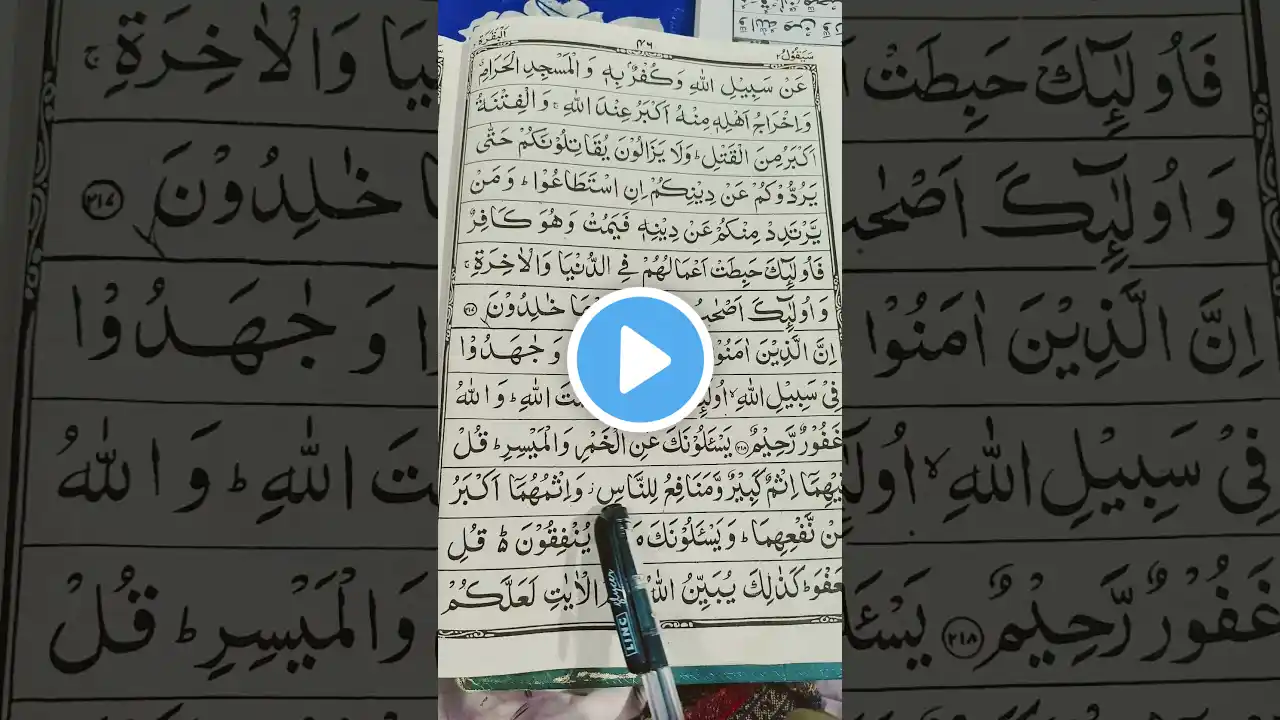 سَيَقُوْلُ ٢ ۴٦ اَلْبَقَرَة
عَنْ سَبِيْلِ اللّٰهِ وَكُفْرٌۢ بِهٖ وَالْمَسْجِدِ الْحَرَامِ ۗ
وَاِخْرَاجُ اَهْلِهٖ مِنْهُ اَكْبَرُ عِنْدَ اللّٰهِ ۚ وَالْفِتْنَةُ
اَكْبَرُ مِنَ الْقَتْلِ ؕ وَلَا يَزَالُوْنَ يُقَاتِلُوْنَكُمْ حَتّٰى
يَرُدُّوْكُمْ عَنْ دِيْنِكُمْ اِنِ اسْتَطَاعُوْا ؕ وَمَنْ
يَّرْتَدِدْ مِنْكُمْ عَنْ دِيْنِهٖ فَيَمُتْ وَهُوَ كَافِرٌ
فَاُولٰٓئِكَ حَبِطَتْ اَعْمَالُهُمْ فِي الدُّنْيَا وَالْاٰخِرَةِ ۚ
وَاُولٰٓئِكَ خٰلِدُوْنَ ﴿٢١٧﴾
اِنَّ الَّذِيْنَ اٰمَنُوْا وَجٰهَدُوْا
فِيْ سَبِيْلِ اللّٰهِ ۙ اللّٰهِ ؕ وَاللّٰهُ
غَفُوْرٌ رَّحِيْمٌ ﴿٢١٨﴾ يَسْـَٔلُوْنَكَ عَنِ الْخَمْرِ وَالْمَيْسِرِ ؕ قُلْ
فِيْهِمَا اِثْمٌ كَبِيْرٌ وَّمَنَافِعُ لِلنَّاسِ ؗ وَاِثْمُهُمَا اَكْبَرُ
مِنْ نَّفْعِهِمَا ؕ وَيَسْـَٔلُوْنَكَ يُنْفِقُوْنَ ؕ قُلِ
الْعَفْوَ ؕ كَذٰلِكَ يُبَيِّنُ اللّٰهُ الْاٰيٰتِ لَعَلَّكُمْ
LINC Glycer